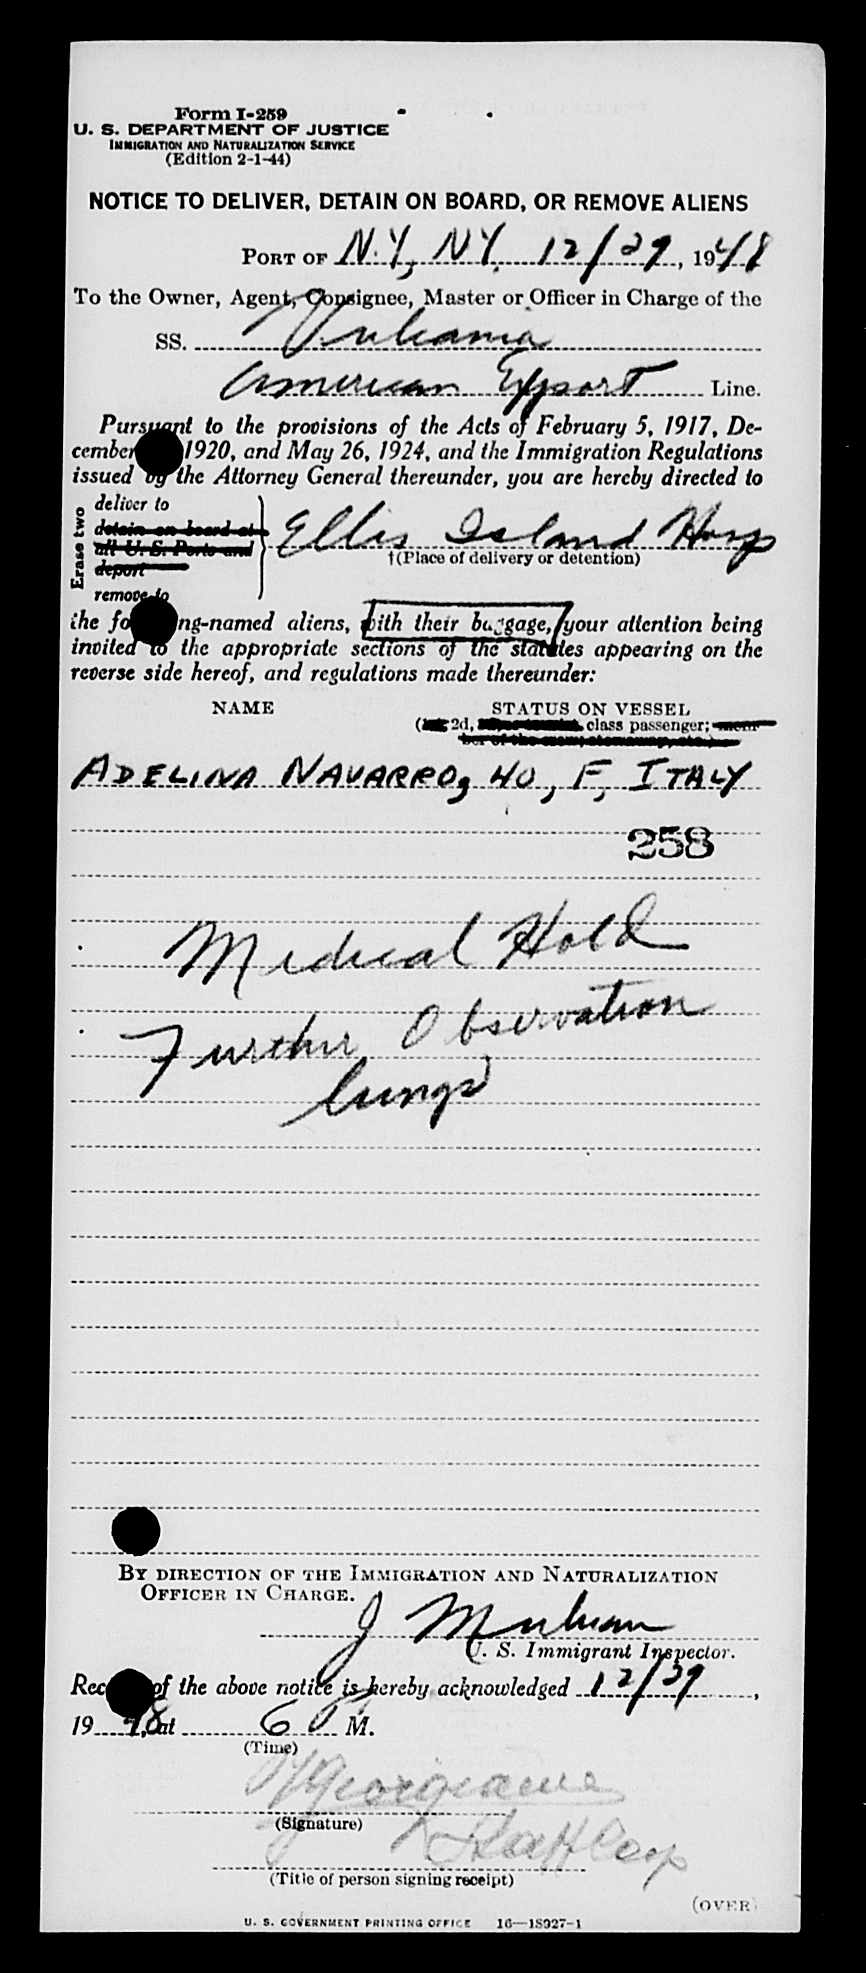 Form I-259
U. S. DEPARTMENT OF JUSTICE
IMMIGRATION AND NATURALIZATION SERVICE
(Edition 2-1-44)
NOTICE TO DELIVER, DETAIN ON BOARD, OR REMOVE ALIENS
PORT OF N.Y., N.Y. 12/29, 1948
To the Owner, Agent, Consignee, Master or Officer in Charge of the
SS. Vulcania
American Export Line.
Pursuant to the provisions of the Acts of February 5, 1917, De-
cember 1920, and May 26, 1924, and the Immigration Regulations
issued by the Attorney General thereunder, you are hereby directed to
Erase two
deliver to
detain on board at
all U. S. Ports and
deport
remove to
Ellis Island Hosp
†(Place of delivery or detention)
the fo ng-named aliens, with their baggage, your attention being
invited to the appropriate sections of the statutes appearing on the
reverse side hereof, and regulations made thereunder:
NAME STATUS ON VESSEL
( 2d, class passenger; mem-
ber of the crew; stowaway, etc.)
ADELINA NAVARRO, 40, F, ITALY
258
Medical Hold
Further Observation
lungs
BY DIRECTION OF THE IMMIGRATION AND NATURALIZATION
OFFICER IN CHARGE.
J
U. S. Immigrant Inspector.
Rec of the above notice is hereby acknowledged 12/29,
1948, at 6 P M.
(Time)
(Signature)
(Title of person signing receipt)
(OVER)
U. S. GOVERNMENT PRINTING OFFICE 16—18927-1